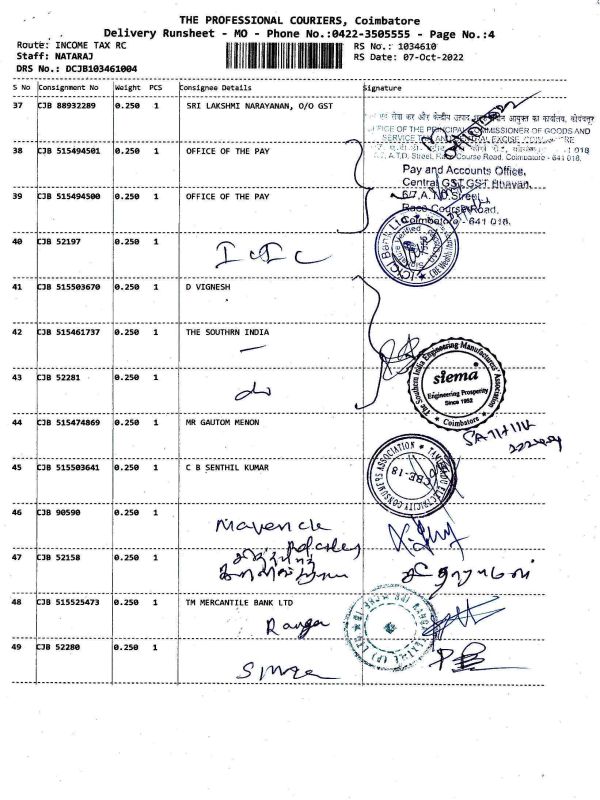 THE PROFESSIONAL COURIERS, Coimbatore
Delivery Runsheet - MO - Phone No.:0422-3505555 - Page No.:4
Route: INCOME TAX RC
RS No.: 1034610
Staff: NATARAJ
RS Date: 07-Oct-2022
DRS No.: DCJB103461004
S No Consignment No Weight PCS Consignee Details Signature
37 CJB 88932289 0.250 1 SRI LAKSHMI NARAYANAN, O/O GST
OFFICE OF THE PRINCIPAL COMMISSIONER OF GOODS AND
SERVICE TAX
38 CJB 515494501 0.250 1 OFFICE OF THE PAY
A.T.D. Street, Race Course Road, Coimbatore - 641 018.
Pay and Accounts Office,
Central GST, GST Bhavan,
39 CJB 515494500 0.250 1 OFFICE OF THE PAY
6/7, A.T.D. Street,
Race Course Road,
Coimbatore - 641 018.
40 CJB 52197 0.250 1
ICIC
ICICI Bank Ltd
41 CJB 515503670 0.250 1 D VIGNESH
42 CJB 515461737 0.250 1 THE SOUTHRN INDIA
The Southern India Engineering Manufacturers' Association
siema
Engineering Prosperity
Since 1952
Coimbatore
43 CJB 52281 0.250 1
do
44 CJB 515474869 0.250 1 MR GAUTOM MENON
SATHIK
45 CJB 515503641 0.250 1 C B SENTHIL KUMAR
TAMILNADU ELECTRICITY CONSUMERS ASSOCIATION
CBE-18
46 CJB 90590 0.250 1
47 CJB 52158 0.250 1
48 CJB 515525473 0.250 1 TM MERCANTILE BANK LTD
Ranga
49 CJB 52280 0.250 1